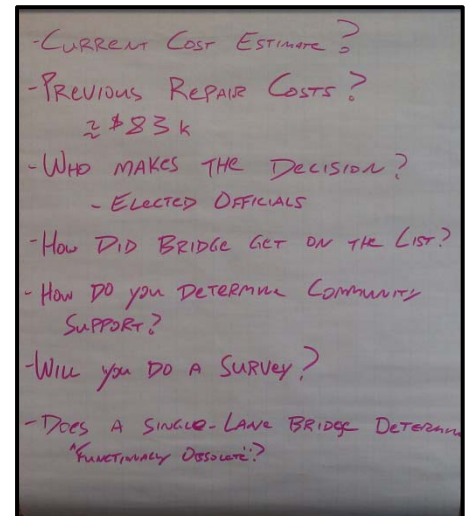 -CURRENT COST ESTIMATE?
-PREVIOUS REPAIR COSTS?
≈ $83k
-WHO MAKES THE DECISION?
- ELECTED OFFICIALS
-HOW DID BRIDGE GET ON THE LIST?
- HOW DO YOU DETERMINE COMMUNITY
SUPPORT?
-WILL YOU DO A SURVEY?
-DOES A SINGLE-LANE BRIDGE DETERMIN
"FUNCTIONALLY OBSOLETE"?